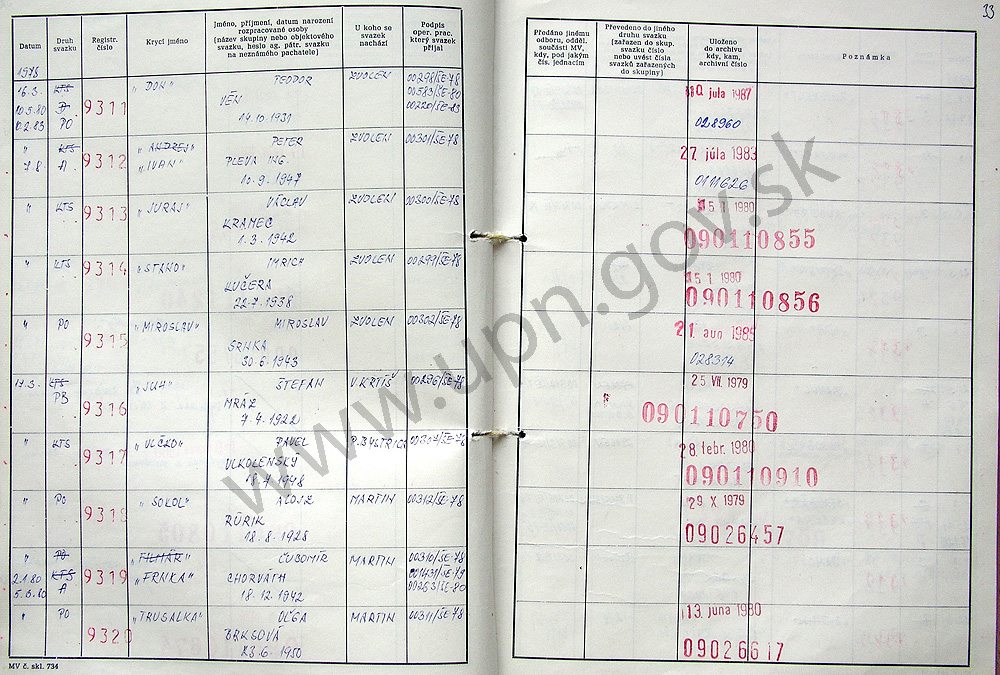 33
Datum
Druh svazku
Registr. číslo
Krycí jméno
Jméno, příjmení, datum narození rozpracované osoby (název skupiny nebo objektového svazku, heslo ag. pátr. svazku na neznámého pachatele)
U koho se svazek nachází
Podpis oper. prac. který svazek přijal
Předáno jinému odboru, odděl. součásti MV, kdy, pod jakým čís. jednacím
Převedeno do jiného druhu svazku (zařazen do skup. svazku číslo nebo uvést čísla svazků zařazených do skupiny)
Uloženo do archivu kdy, kam, archivní číslo
Poznámka
1978
16.3. KTS 9311 „DON" TEODOR ZVOLEN 00298/ŠE-78
10.5.80 00583/ŠE-80
10.2.83 PO VÉN 00220/ŠE-83
14.10.1931
jula 1987
028960
" KTS 9312 „ANDREJ" PETER ZVOLEN 00301/ŠE-78
7.8. A „IVAN" PLEVA ING.
10.9.1947
27. júla 1983
011626
" KTS 9313 „JURAJ" VÁCLAV ZVOLEN 00300/ŠE-78
KRAMEC
1.3.1942
1980
090110855
" KTS 9314 „STANO" IMRICH ZVOLEN 00299/ŠE-78
KUČERA
22.7.1938
1980
090110856
" PO 9315 „MIROSLAV" MIROSLAV ZVOLEN 00302/ŠE-78
SRNKA
30.6.1943
21. aug 1985
028314
17.3. KTS 9316 „JUH" ŠTEFAN V.KRTÍŠ 00296/ŠE-78
PB MRÁZ
7.4.1922
25 VII. 1979
090110750
" KTS 9317 „VLČKO" PAVEL P.BYSTRICA
VLKOLENSKÝ
18.7.1948
28. febr. 1980
090110910
" PO 9318 „SOKOL" ALOJZ MARTIN 00312/ŠE-78
RÚRIK
18.8.1928
29 X 1979
09026457
" PO 9319 „FILMÁR" ĽUBOMÍR MARTIN 00310/ŠE-78
2.1.80 KTS „FRNKA" CHORVÁTH 001431/ŠE-79
5.6.80 A 18.12.1942 00253/ŠE-80
" PO 9320 „TRUSALKA" OĽGA MARTIN 00311/ŠE-78
BRKSOVÁ
23.6.1950
13. júna 1980
09026617
MV č. skl. 734
www.upn.gov.sk